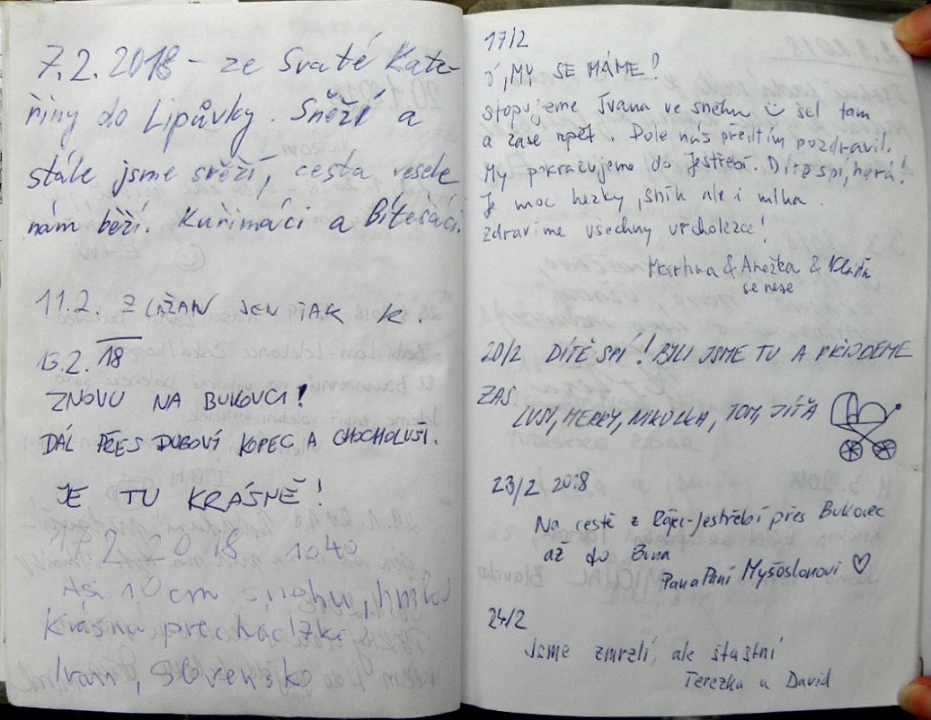 7.2.2018 - ze Svaté Kate-
řiny do Lipůvky. Sněží a
stále jsme svěží, cesta vesele
nám běží. Kuřimáci a Bítešáci.
11.2. Z LAŽAN JEN TAK K.
15.2. 18
ZNOVU NA BUKOVCI!
DÁL PŘES DUBOVÝ KOPEC A CHOCHOLUŠI.
JE TU KRÁSNĚ!
17.2.2018 1040
Asi 10 cm snahu, hmla
krásna prechádzka
Ivan, Slovensko
17/2
J, MY SE MÁME!
stopujeme Ivana ve sněhu šel tam
a zase zpět. Dole nás předtím pozdravil.
My pokračujeme do Jestřebí. Dítě spí, hurá!
Je moc hezky, sníh ale i mlha.
Zdravíme všechny vrcholezce!
Martina & Anežka &
se nese
20/2 DÍTĚ SPÍ! BYLI JSME TU A PŘIJDEME
ZAS.
LUSI, HERBY, NIKOLKA, TOM, JÍŤA
23/2 2018
Na cestě z Rájec-Jestřebí přes Bukovec
až do Brna
Pan a Paní Myšoslonovi ♡
24/2
Jsme zmrzlí, ale šťastní
Terezka a David